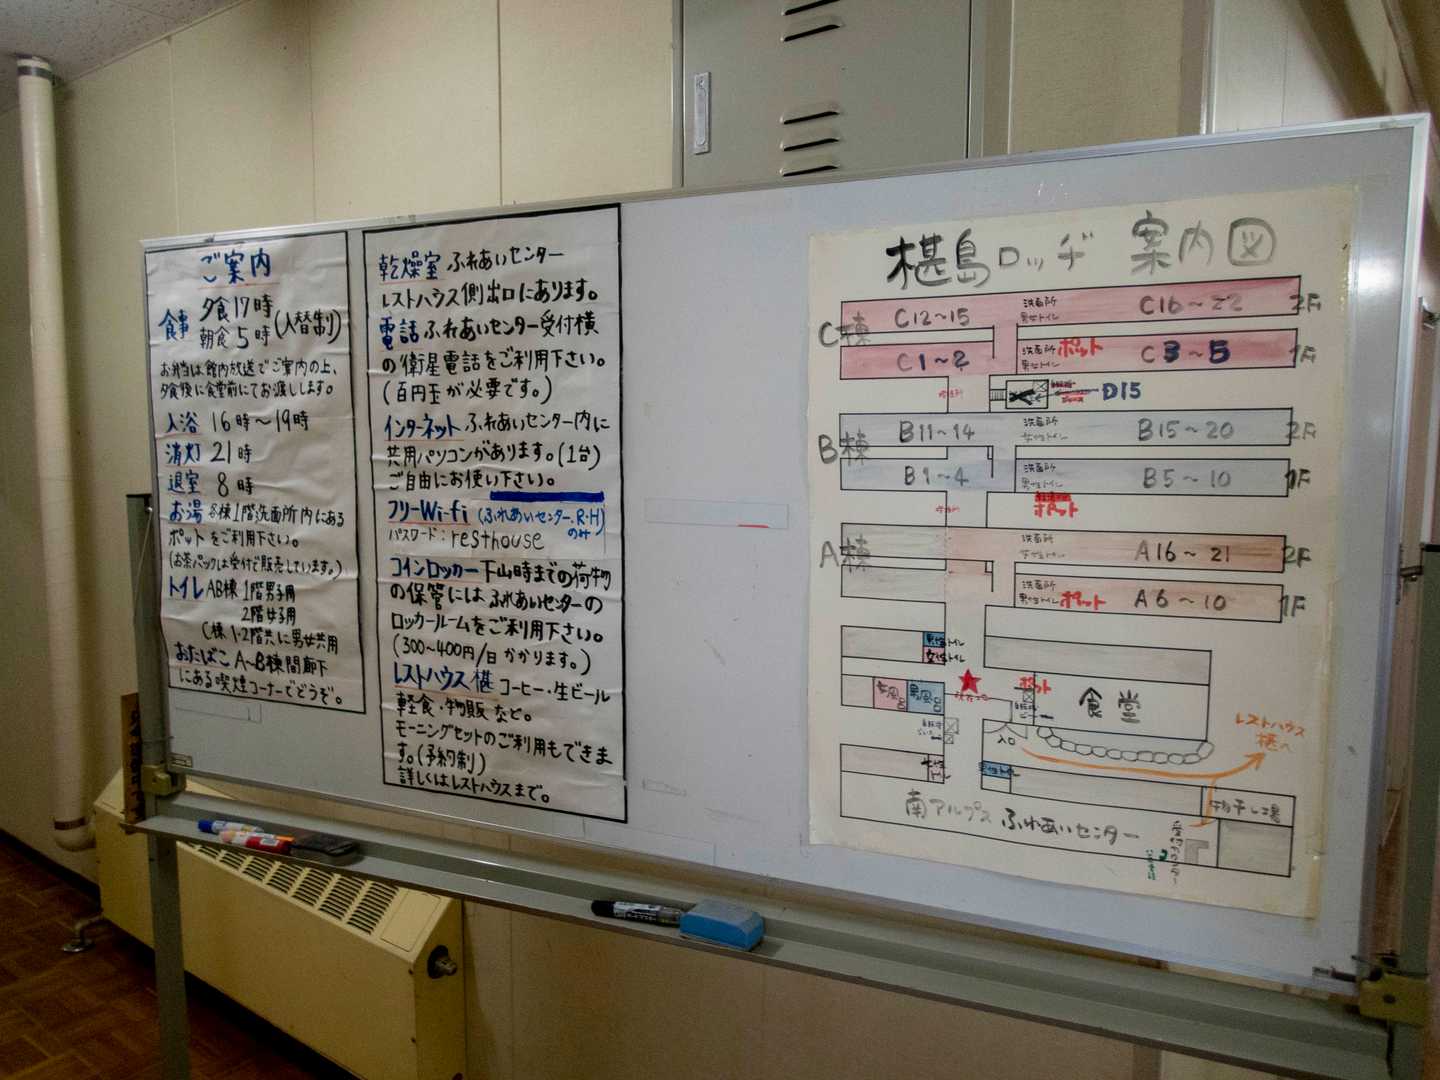 ご案内
食事 夕食17時
朝食5時(入替制)
お弁当は館内放送でご案内の上、
夕食後に食堂前にてお渡しします。
入浴 16時〜19時
消灯 21時
退室 8時
お湯 各棟1階洗面所内にある
ポットをご利用下さい。
(お茶パックは受付で販売しています。)
トイレ AB棟 1階男子用
2階女子用
C棟 1・2階共に男女共用
おたばこ A〜B棟間廊下
にある喫煙コーナーでどうぞ。
乾燥室 ふれあいセンター
レストハウス側出口にあります。
電話 ふれあいセンター受付横
の衛星電話をご利用下さい。
(百円玉が必要です。)
インターネット ふれあいセンター内に
共用パソコンがあります。(1台)
ご自由にお使い下さい。
フリーWi-fi (ふれあいセンター、R・H)
のみ
パスワード:resthouse
コインロッカー 下山時までの荷物
の保管にはふれあいセンターの
ロッカールームをご利用下さい。
(300〜400円/日かかります。)
レストハウス椹 コーヒー・生ビール
軽食・物販など。
モーニングセットのご利用もできま
す。(予約制)
詳しくはレストハウスまで。
椹島ロッヂ 案内図
C棟
C12〜15 洗面所 男女トイレ C16〜22 2F
C1〜2 洗面所 男女トイレ ポット C3〜5 1F
D15
B棟
B11〜14 洗面所 女性トイレ B15〜20 2F
B1〜4 洗面所 男性トイレ B5〜10 1F
ポット
A棟
洗面所 女性トイレ A16〜21 2F
洗面所 男性トイレ ポット A6〜10 1F
男性トイレ
女性トイレ
女風呂 男風呂
ポット
食堂
入口
レストハウス
椹へ
女性トイレ
男性トイレ
物干し場
南アルプス ふれあいセンター